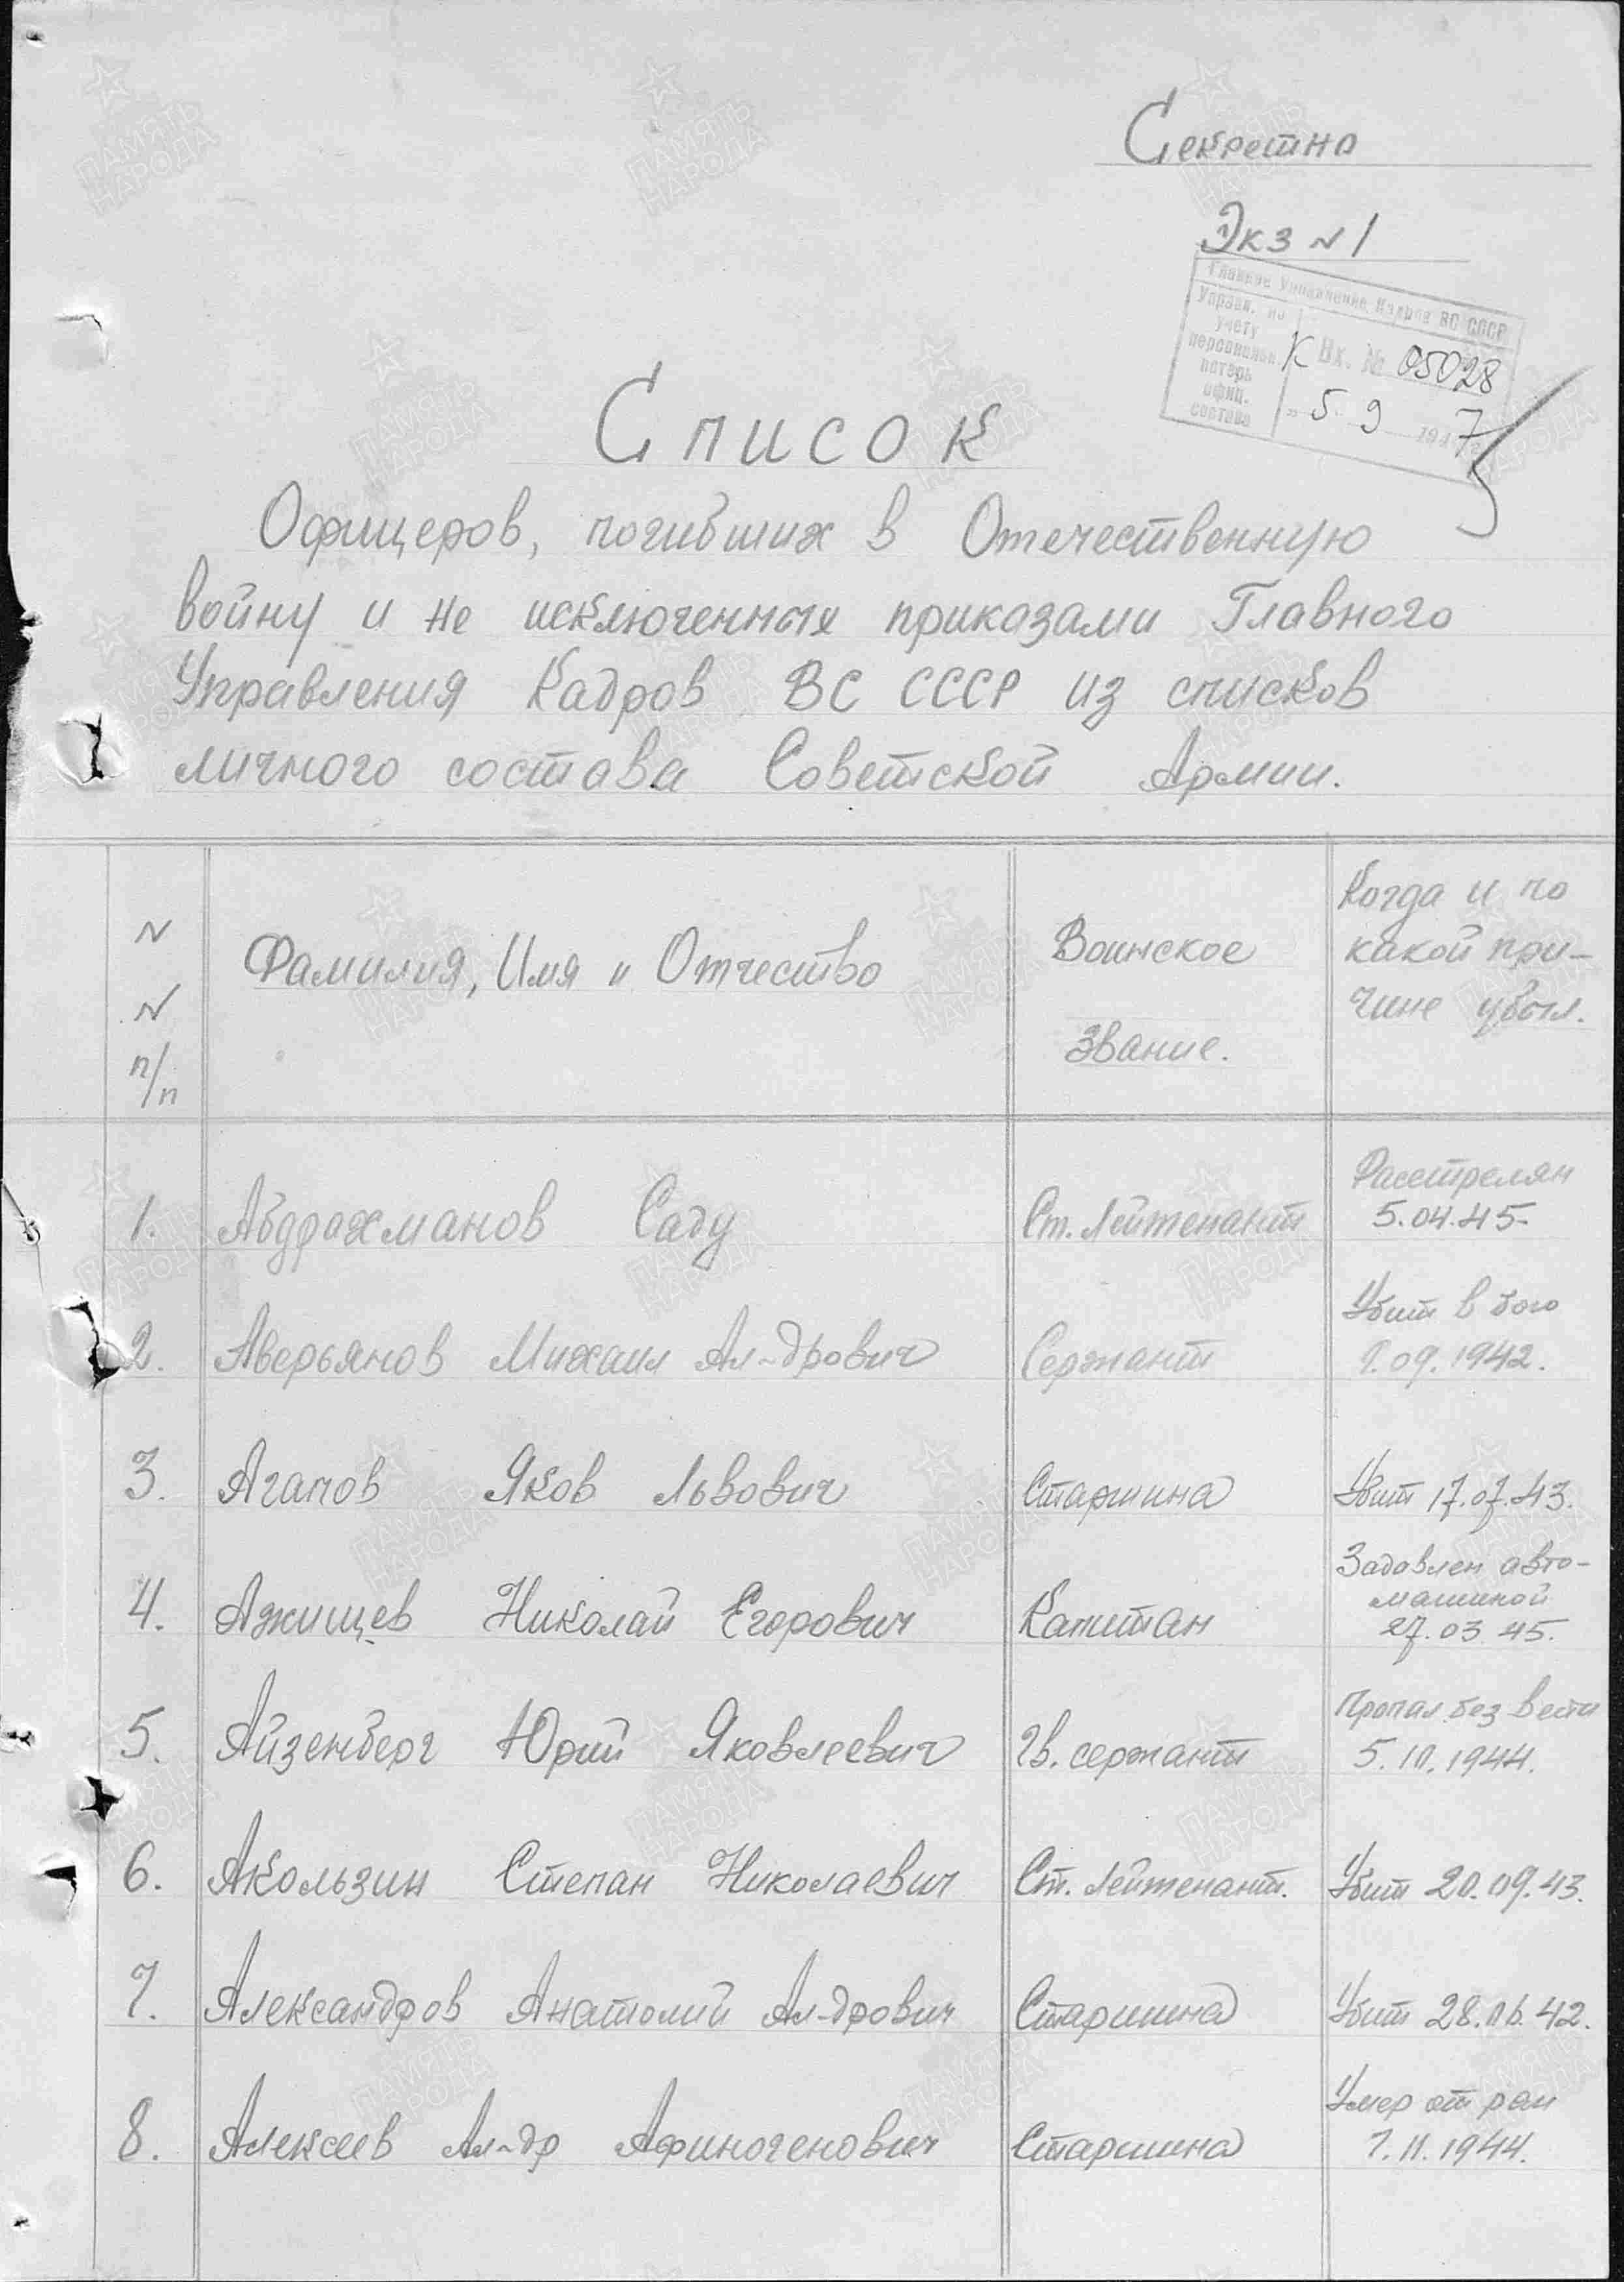 Секретно
Экз № 1
Главное Управление Кадров ВС СССР
Управ. по учету персональн. потерь офиц. состава
К Вх. № 05028
" 5 " 9 1947
Список
Офицеров, погибших в Отечественную
войну и не исключенных приказами Главного
Управления Кадров ВС СССР из списков
личного состава Советской Армии.
№ № п/п Фамилия, Имя и Отчество Воинское Звание. Когда и по какой при- чине убыл.
1. Абдрахманов Саду Ст. Лейтенант Расстрелян 5.04.45.
2. Аверьянов Михаил Ал-дрович Сержант Убит в бою 09.1942.
3. Агапов Яков Львович Старшина Убит 17.07.43.
4. Ажищев Николай Егорович Капитан Задавлен авто- машиной 27.03.45.
5. Айзенберг Юрий Яковлевич Гв. сержант Пропал без вести 5.10.1944.
6. Акользин Степан Николаевич Ст. Лейтенант. Убит 20.09.43.
7. Александров Анатолий Ал-дрович Старшина Убит 28.06.42.
8. Алексеев Ал-др Афиногенович Старшина Умер от ран 11.1944.
ПАМЯТЬ НАРОДА